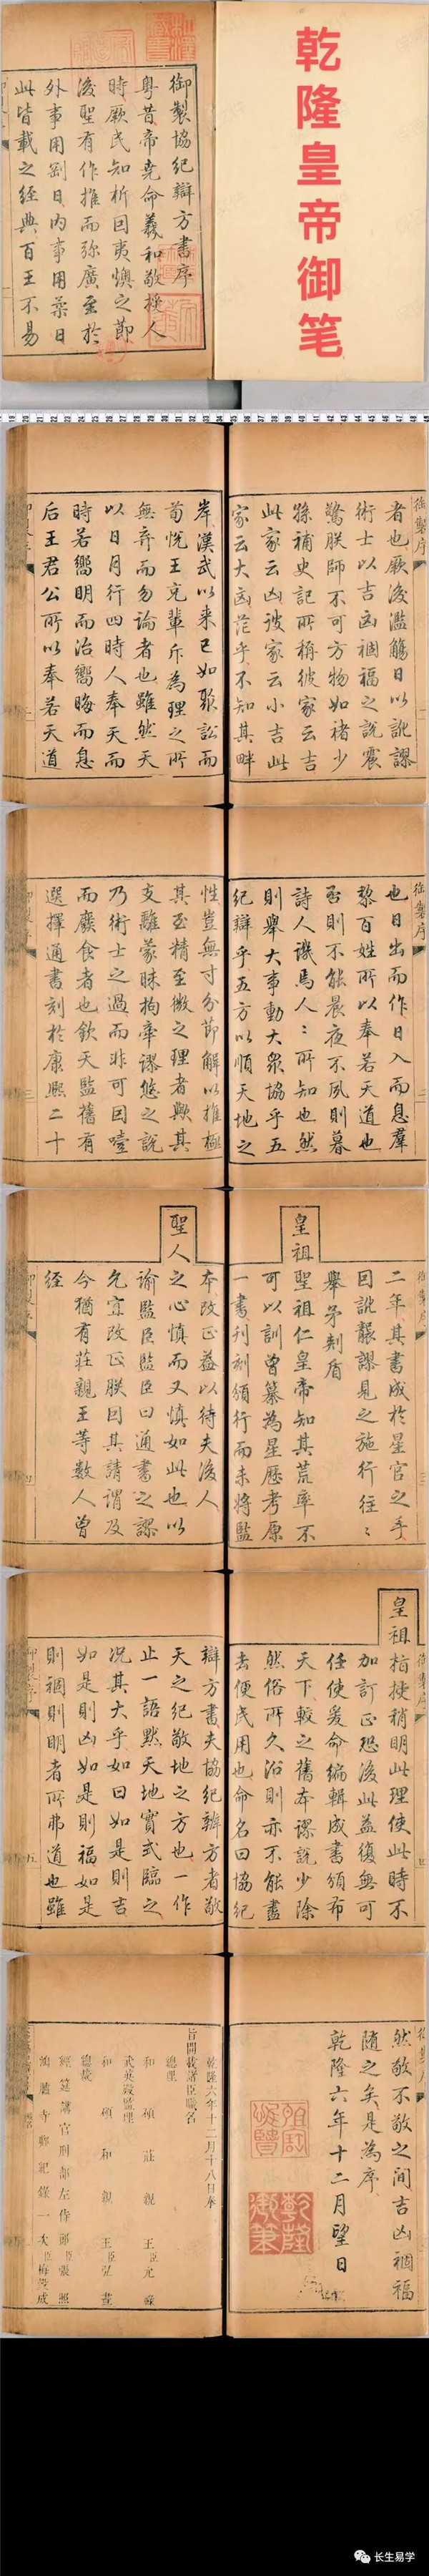 乾隆皇帝御笔
御製協紀辯方書序
粵昔帝堯命羲和敬授人
時厥民知析因夷燠之節
後聖有作推而彌廣至於
外事用剛日內事用柔日
此皆載之經典百王不易
御製序
者也厥後濫觴日以訛謬
術士以吉凶禍福之說震
驚朕師不可方物如褚少
孫補史記所稱彼家云吉
此家云凶彼家云小吉此
家云大凶茫乎不知其畔
岸漢武以來已如聚訟而
荀悅王充輩斥為理之所
無棄而勿論者也雖然天
以日月行四時人奉天而
時若嚮明而治嚮晦而息
后王君公所以奉若天道
御製序
也日出而作日入而息羣
黎百姓所以奉若天道也
否則不能晨夜不夙則暮
詩人譏焉人〻所知也然
則舉大事動大眾協乎五
紀辯乎五方以順天地之
性豈無寸分節解以推極
其至精至微之理者歟其
支離蒙昧拘牽謬悠之說
乃術士之過而非可因噎
而廢食者也欽天監舊有
選擇通書刻於康熙二十
御製序
二年其書成於星官之手
因訛襲謬見之施行往〻
舉矛刺盾
皇祖
聖祖仁皇帝知其荒率不
可以訓曾纂為星歷考原
一書刊刻頒行而未將監
本改正蓋以待夫後人
聖人之心慎而又慎如此也以
諭監臣監臣曰通書之謬
允宜改正朕因其請謂及
今猶有莊親王等數人曾
經
皇祖指授稍明此理使此時不
加訂正恐後此益復無可
任使爰命編輯成書頒布
天下較之舊本謬說少除
然俗所久沿則亦不能盡
去便民用也命名曰協紀
辯方書夫協紀辨方者敬
天之紀敬地之方也一作
止一語默天地實式臨之
況其大乎如曰如是則吉
如是則凶如是則福如是
則禍則明者所弗道也雖
然敬不敬之間吉凶禍福
隨之矣是為序
乾隆六年十二月望日
乾隆六年十二月十八日奉
旨開載諸臣職名
總理
和碩莊親王臣允祿
武英殿監理
和碩和親王臣弘晝
總裁
經筵講官刑部左侍郎臣張照
長生易学